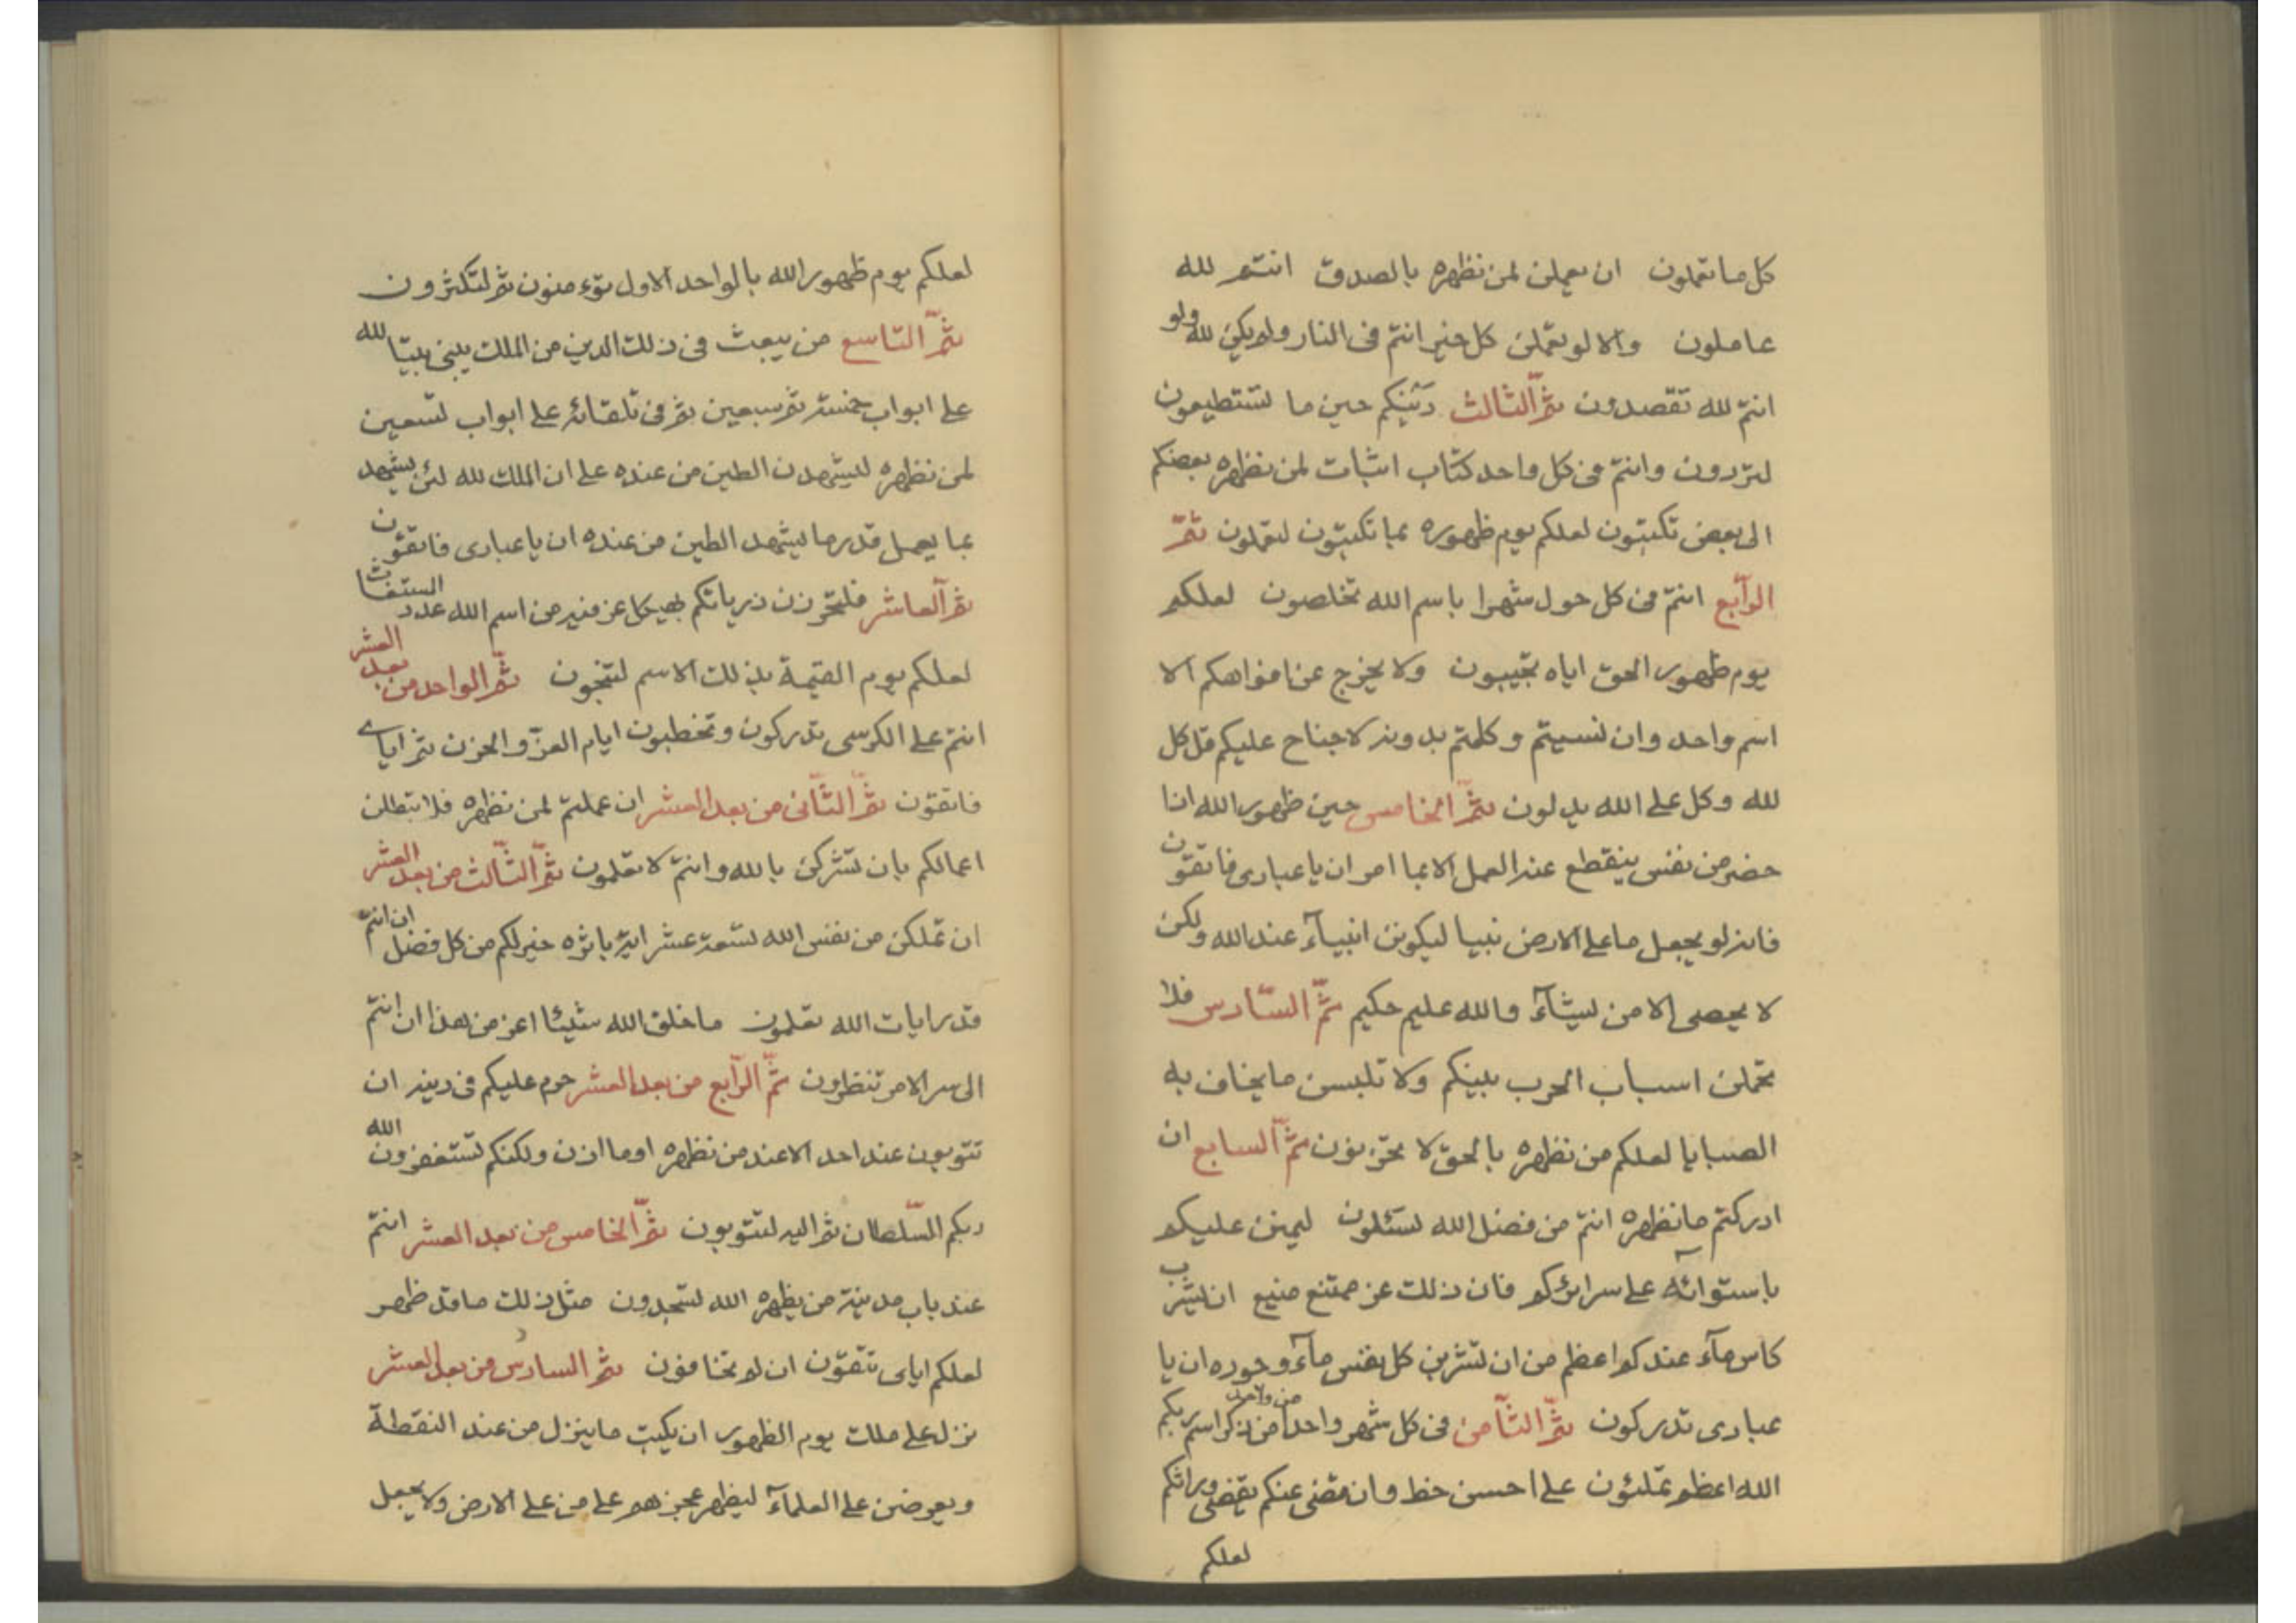 كل ما تعملون ان يعملن لمن نظهره بالصدق انتم لله
عاملون والا لو تعملن كل خير انتم فى النار ولم يكن لله ولو
انتم لله تقصدون ثمّ الثالث دَيْنكم حين ما تستطيعون
لتردون وانتم فى كل واحد كتاب اثبات لمن نظهره بعضكم
الى بعض تكتبون لعلكم يوم ظهوره بما تكتبون لتعملون ثمّ
الرّابع انتم فى كل حول شهرا باسم الله تخلصون لعلكم
يوم ظهور الحق اياه تجيبون ولا يخرج عن افواهكم الا
اسم واحد وان نسيتم وكلمتم بدونه لا جناح عليكم قل كل
لله وكل على الله يدلون ثمّ الخامس حين ظهور الله اذا
حضر من نفس ينقطع عنه العمل الا بما امر ان يا عبادى فاتقون
فانه لو يجعل ما على الارض نبيا ليكونن انبيآء عند الله ولكن
لا يحصى الا من يشآء والله عليم حكيم ثمّ السّادس فلا
تحملن اسباب الحرب بينكم ولا تلبسن ما يخاف به
الصبايا لعلكم من نظهره بالحق لا تحزنون ثمّ السابع ان
ادركتم ما نظهره انتم من فضل الله تسئلون ليمنن عليكم
باستوائه على سرائركم فان ذلك عز ممتنع منيع ان يشرب
كاس مآء عندكم اعظم من ان تشربن كل نفس مآء وجوده ان يا
عبادى تدركون ثمّ الثّامن فى كل شهر واحدا من واحد من ذكر اسم ربكم
الله اعظم تملئون على احسن خط وان قضى عنكم يقضى وراثكم
لعلكم
لعلكم يوم ظهور الله بالواحد الاول تؤمنون ثم لتكثرون
ثمّ التاسع من يبعث فى ذلك الدين من الملك يبنى بيتا لله
على ابواب خمسة ثم سبعين ثم فى تلقائه على ابواب تسعين
لمن نظهره ليشهدن الطين من عنده على ان الملك لله لئن يشهد
بما يعمل قدر ما يشهد الطين من عنده ان يا عبادى فاتقون
ثمّ العاشر فلتحرزن ذرياتكم بهيكل عز منير من اسم الله عدد المستغاث
لعلكم يوم القيمة بذلك الاسم لتنجون ثمّ الواحد من بعد العشر
انتم على الكرسى تدركون وتخطبون ايام العزّ والحزن ثم اياى
فاتقون ثمّ الثّانى من بعد العشر ان عملتم لمن نظهره فلا تبطلن
اعمالكم بان تشركن بالله وانتم لا تعلمون ثمّ الثّالث من بعد العشر
ان تملكن من نفس الله تسعة عشر اية باثره خير لكم من كل فضل ان انتم
قدر ايات الله تعلمون ما خلق الله شيئا اعز من هذا ان انتم
الى سر الامر تنظرون ثمّ الرّابع من بعد العشر حرم عليكم فى دينه ان
تتوبون عند احد الا عند من نظهره او ما اذن ولكنكم تستغفرون الله
ربكم السّلطان ثم اليه لتتوبون ثمّ الخامس من بعد العشر انتم
عند باب مدينة من يظهره الله تسجدون مثل ذلك ما قد ظهر
لعلكم اياى تتقون ان لم تخافون ثمّ السادس من بعد العشر
نزل على ملك يوم الظهور ان يكتب ما ينزل من عند النقطة
ويعرضن على العلمآء ليظهر عجزهم على من على الارض ولا يجعل